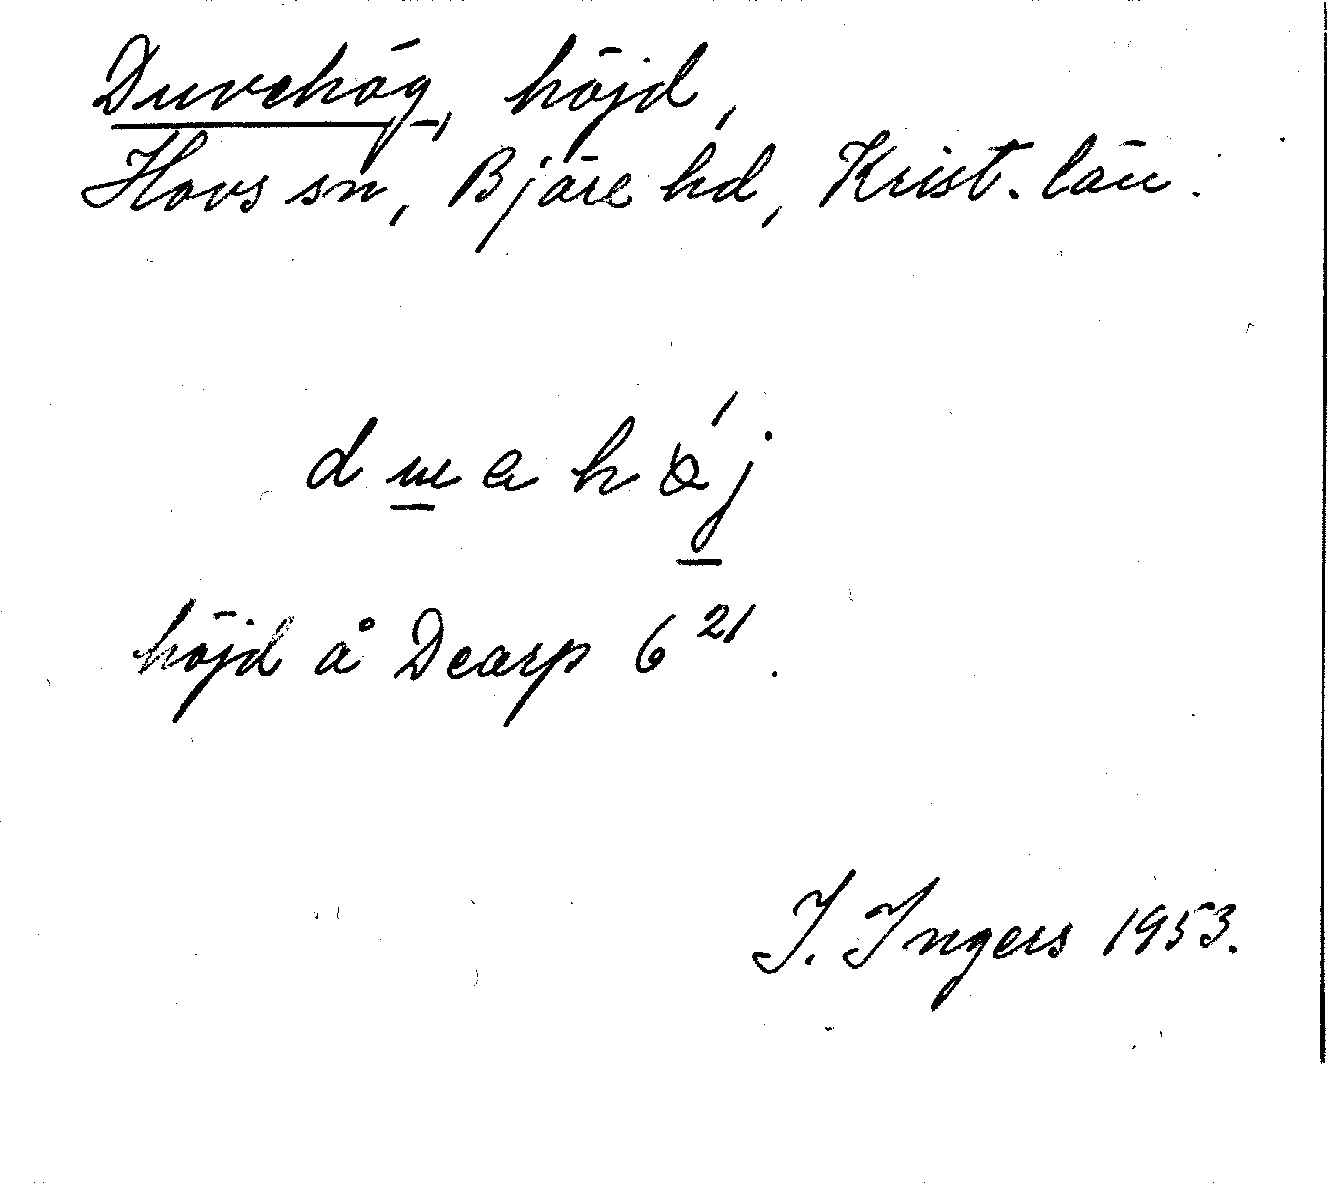 Duvehög, höjd,
Hovs sn, Bjäre hd, Krist. län.
höjd å Dearp 6²¹.
I. Ingers 1953.